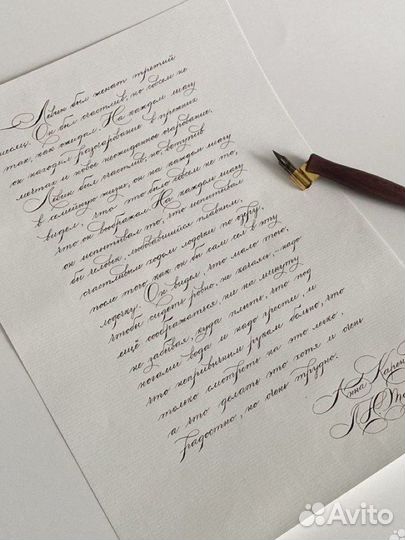 Левин был женат третий
месяц. Он был счастлив, но совсем не
так, как ожидал. На каждом шагу
он находил разочарование в прежних
мечтах и новое неожиданное очарование.
Левин был счастлив, но, вступив
в семейную жизнь, он на каждом шагу
видел, что это было совсем не то,
что он воображал. На каждом шагу
он испытывал то, что испытывал
бы человек, любовавшийся плавным,
счастливым ходом лодочки по озеру,
после того как он бы сам сел в эту
лодочку. Он видел, что мало того,
чтобы сидеть ровно, не качаясь, - надо
ещё соображаться, ни на минуту
не забывая, куда плыть, что под
ногами вода и надо грести, и
что непривычным рукам больно, что
только смотреть на это легко,
а что делать это хотя и очень
радостно, но очень трудно.
Анна Карен
Л. Н. То
Avito